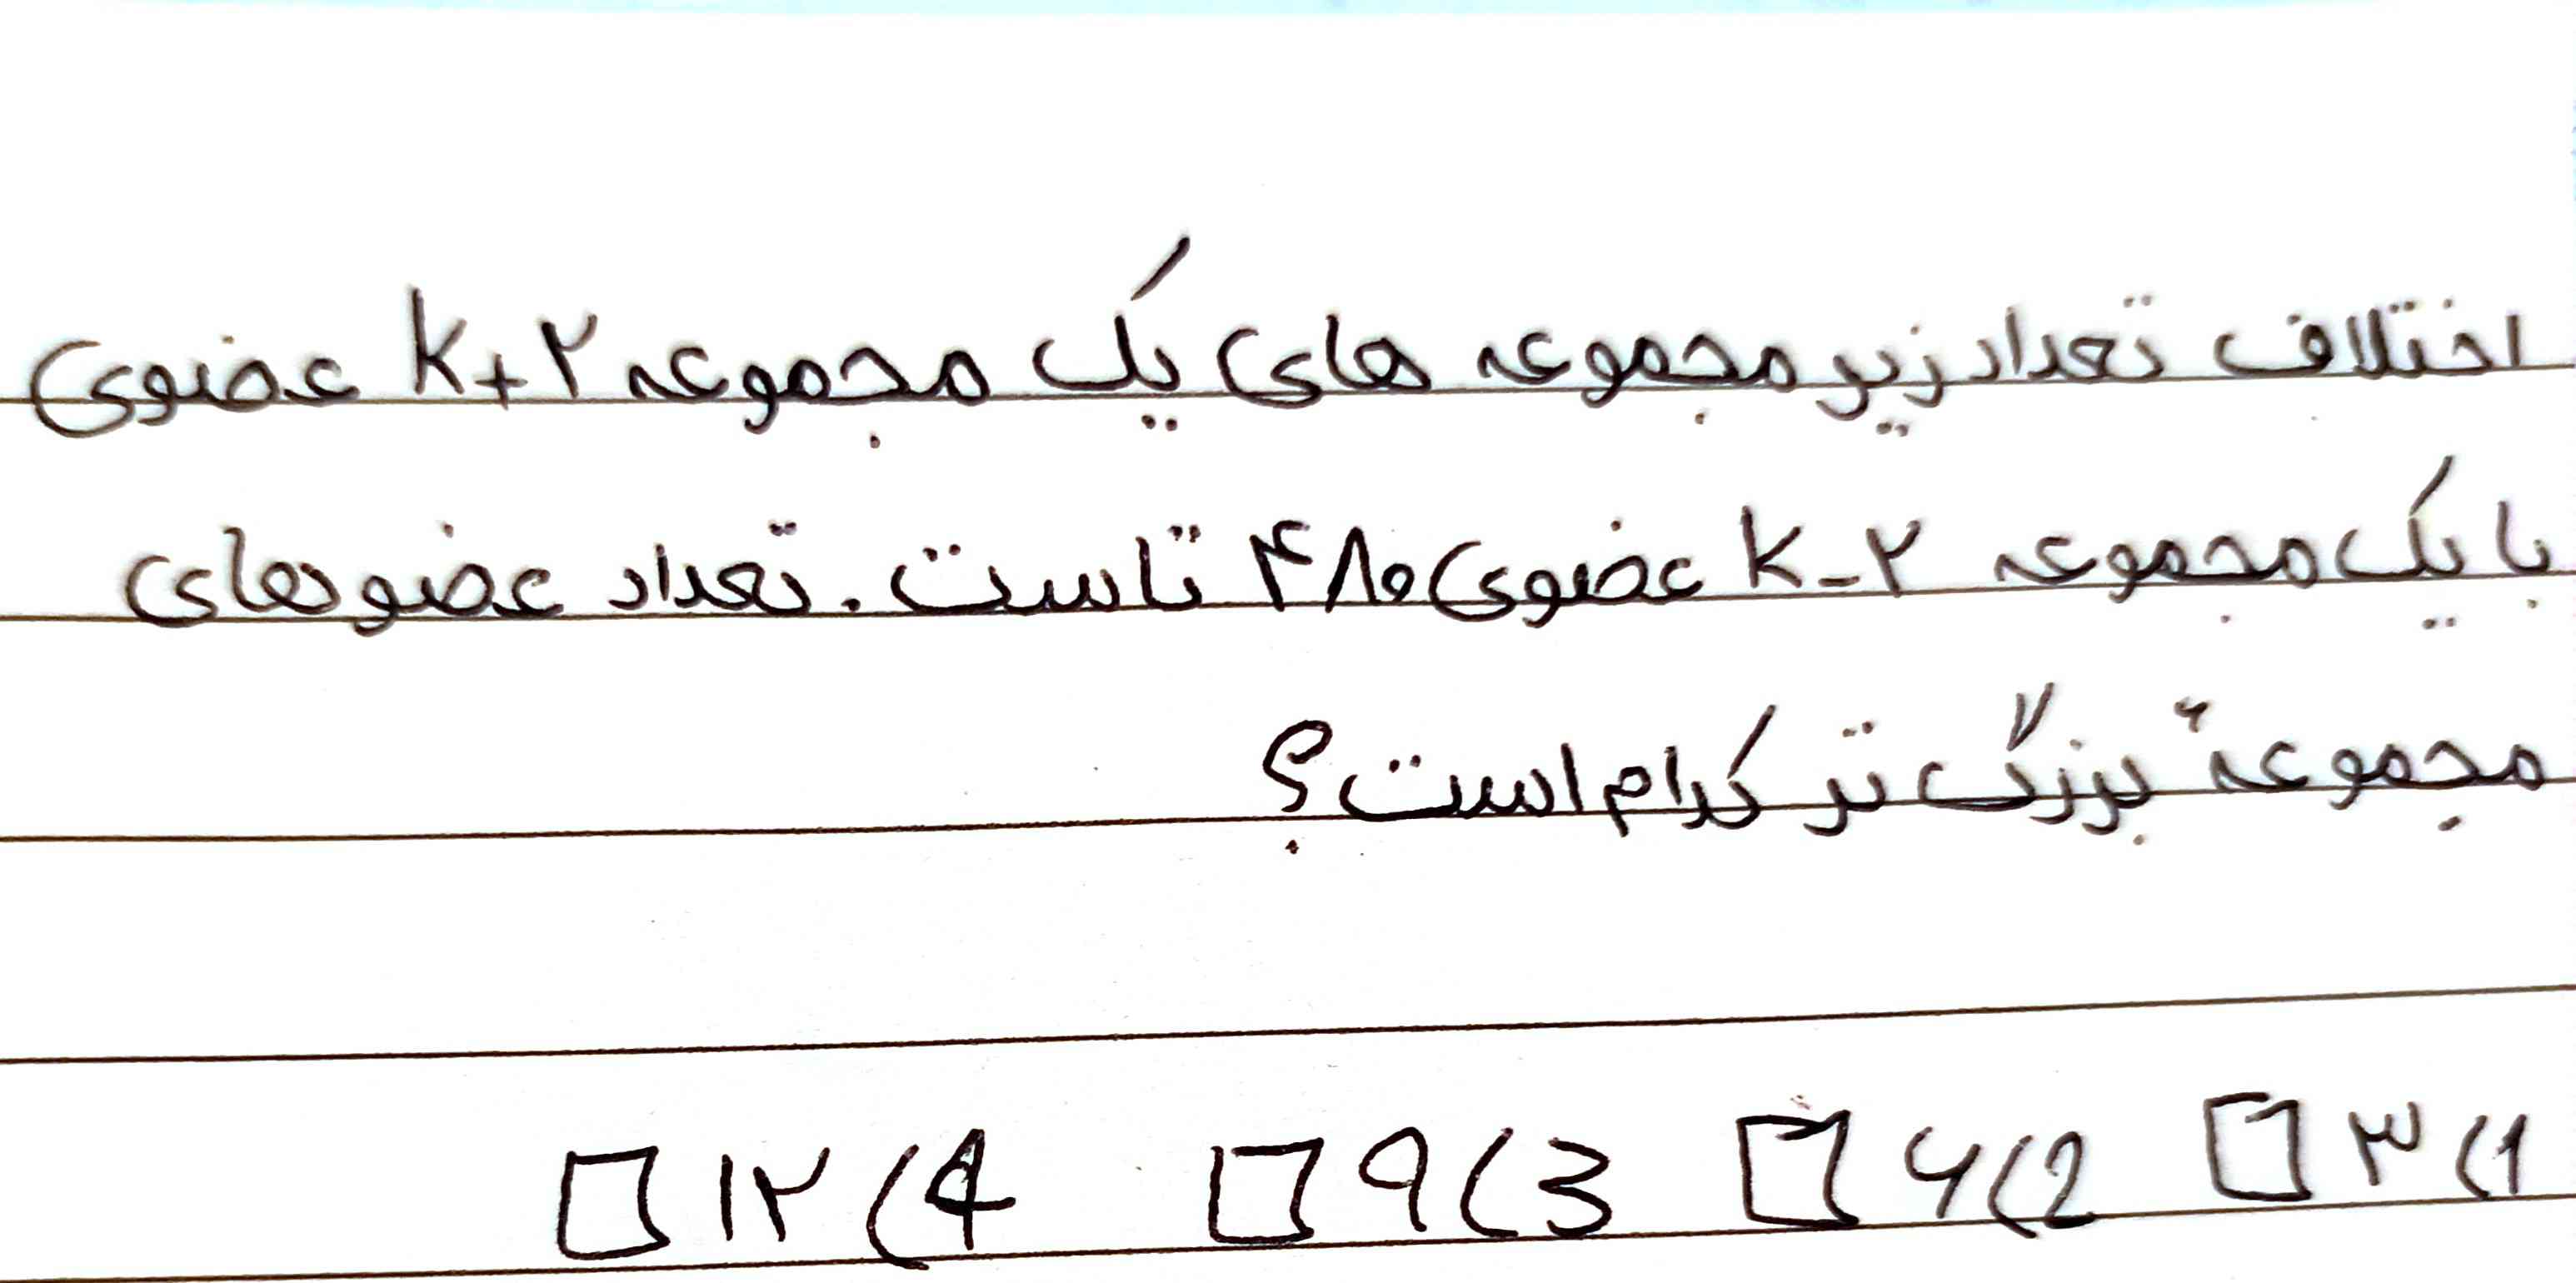 اختلاف تعداد زیر مجموعه های یک مجموعه K+۲ عضوی
با یک مجموعه K-۲ عضوی ۴۸۰ تاست. تعداد عضوهای
مجموعهٔ بزرگ تر کدام است؟
1) ۳ □ 2) ۶ □ 3) ۹ □ 4) ۱۲ □